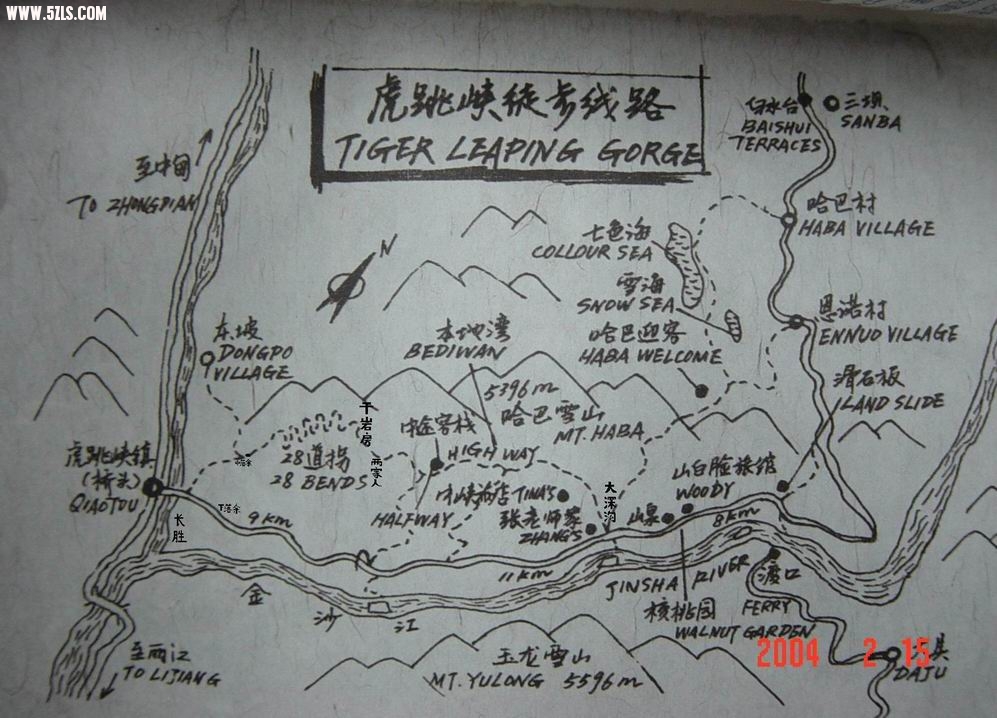 WWW.5ZLS.COM
虎跳峡徒步线路
TIGER LEAPING GORGE
白水台
BAISHUI
TERRACES
三坝
SANBA
至中甸
TO ZHONGDIAN
哈巴村
HABA VILLAGE
七色海
COLLOUR SEA
N
雪海
SNOW SEA
恩诺村
ENNUO VILLAGE
东坡
DONGPO
VILLAGE
本地湾
BEDIWAN
哈巴迎客
HABA WELCOME
滑石板
ILAND SLIDE
5396m
哈巴雪山
MT. HABA
干岩房
中途客栈
HIGH WAY
28道拐
28 BENDS
两家人
虎跳峡镇
(桥头)
QIAOTOU
山白脸旅馆
WOODY
大深沟
中峡旅店 TINA'S
张老师家
ZHANG'S
山泉
HALFWAY
下落余
长胜
9km
8km
11km
JINSHA RIVER
金
沙
江
渡口
FERRY
核桃园
WALNUT GARDEN
玉龙雪山
MT. YULONG 5596m
TO LIJIANG
DAJU
2004 2 15